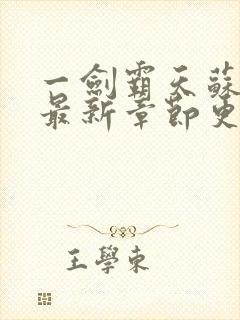 一劍霸天蘇
最新章節史
王學東